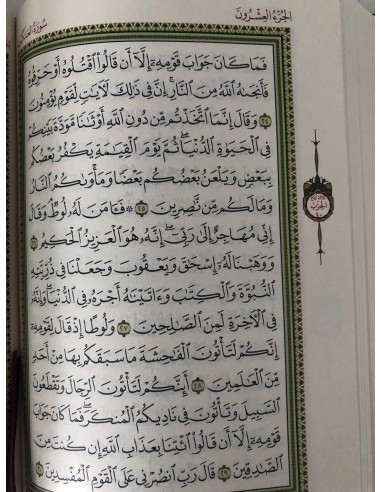 الجُزْءُ العِشْرُونَ
سُورَةُ العَنكَبُوتِ
فَمَا كَانَ جَوَابَ قَوْمِهِۦٓ إِلَّآ أَن قَالُوا۟ ٱقْتُلُوهُ أَوْ حَرِّقُوهُ
فَأَنجَىٰهُ ٱللَّهُ مِنَ ٱلنَّارِ ۚ إِنَّ فِى ذَٰلِكَ لَءَايَٰتٍ لِّقَوْمٍ يُؤْمِنُونَ
٢٤ وَقَالَ إِنَّمَا ٱتَّخَذْتُم مِّن دُونِ ٱللَّهِ أَوْثَٰنًا مَّوَدَّةَ بَيْنِكُمْ
فِى ٱلْحَيَوٰةِ ٱلدُّنْيَا ۖ ثُمَّ يَوْمَ ٱلْقِيَٰمَةِ يَكْفُرُ بَعْضُكُم
بِبَعْضٍ وَيَلْعَنُ بَعْضُكُم بَعْضًا وَمَأْوَىٰكُمُ ٱلنَّارُ
وَمَا لَكُم مِّن نَّٰصِرِينَ ٢٥ ۞ فَـَٔامَنَ لَهُۥ لُوطٌ ۘ وَقَالَ
إِنِّى مُهَاجِرٌ إِلَىٰ رَبِّىٓ ۖ إِنَّهُۥ هُوَ ٱلْعَزِيزُ ٱلْحَكِيمُ ٢٦
وَوَهَبْنَا لَهُۥٓ إِسْحَٰقَ وَيَعْقُوبَ وَجَعَلْنَا فِى ذُرِّيَّتِهِ
ٱلنُّبُوَّةَ وَٱلْكِتَٰبَ وَءَاتَيْنَٰهُ أَجْرَهُۥ فِى ٱلدُّنْيَا ۖ وَإِنَّهُۥ
فِى ٱلْءَاخِرَةِ لَمِنَ ٱلصَّٰلِحِينَ ٢٧ وَلُوطًا إِذْ قَالَ لِقَوْمِهِۦٓ
إِنَّكُمْ لَتَأْتُونَ ٱلْفَٰحِشَةَ مَا سَبَقَكُم بِهَا مِنْ أَحَدٍ
مِّنَ ٱلْعَٰلَمِينَ ٢٨ أَئِنَّكُمْ لَتَأْتُونَ ٱلرِّجَالَ وَتَقْطَعُونَ
ٱلسَّبِيلَ وَتَأْتُونَ فِى نَادِيكُمُ ٱلْمُنكَرَ ۖ فَمَا كَانَ جَوَابَ
قَوْمِهِۦٓ إِلَّآ أَن قَالُوا۟ ٱئْتِنَا بِعَذَابِ ٱللَّهِ إِن كُنتَ مِنَ
ٱلصَّٰدِقِينَ ٢٩ قَالَ رَبِّ ٱنصُرْنِى عَلَى ٱلْقَوْمِ ٱلْمُفْسِدِينَ ٣٠
الحزب